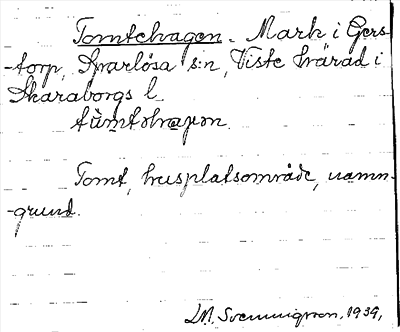 Tomtehagen. Mark i Gers-
-torp, Sparlösa s:n, Viste härad i
Skaraborgs l.
Tomt, husplatsområde, namn-
-grund.
L.M. Svenningsson, 1939,